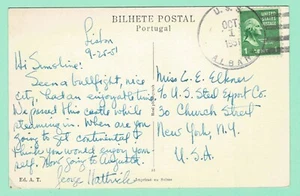 BILHETE POSTAL
Portugal
U.S.S.
OCT
1
ALBANY
Lisbon
9-26-51
Hi Sunshine!
Seen a bullfight, nice
city, had an enjoyable time.
We passed this castle while
steaming in. When are you
going to get continental?
think you would enjoy your-
self. Now going to Augusta.
George
Miss L. E. Elkner
% U.S. Steel Export Co.
30 Church Street
New York, N.Y.
U.S.A.
Ed. A. T.